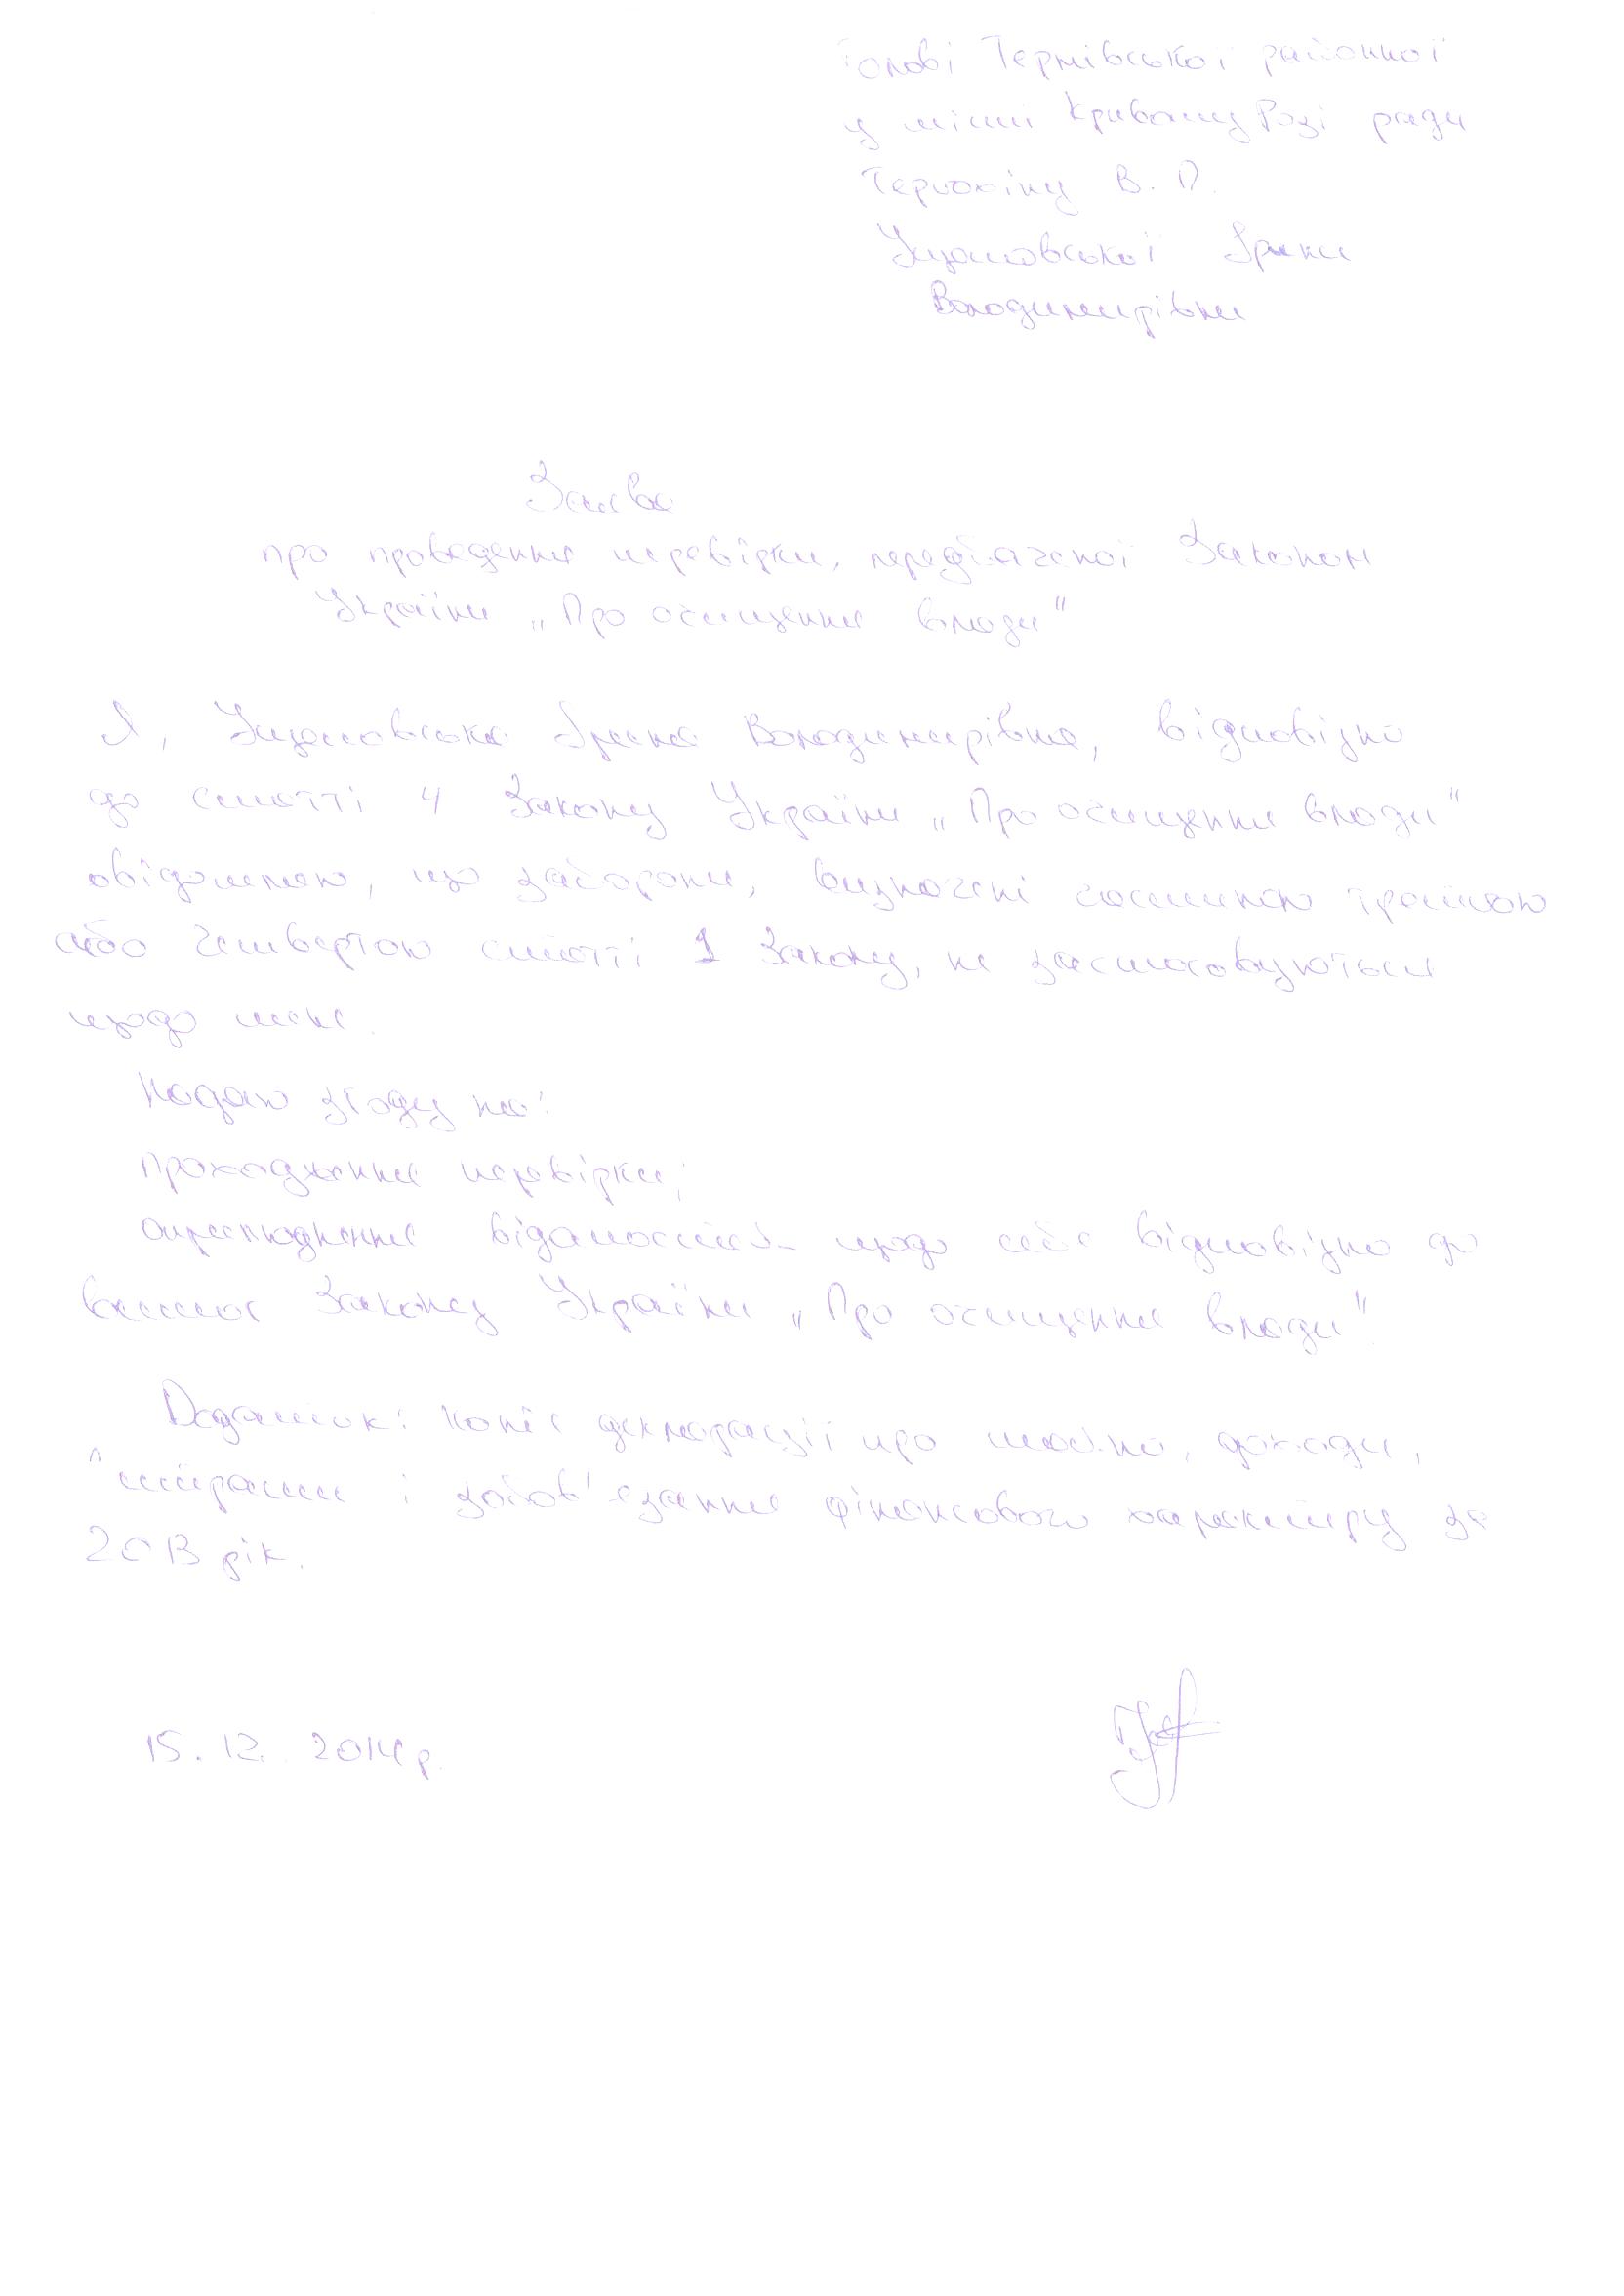 Голові Тернівської районної
у місті Кривому Розі ради
Терюхіну В. П.
Ірини
Володимирівни
Заява
про проведення перевірки, передбаченої Законом
України „Про очищення влади"
Я, Ірина Володимирівна, відповідно
до статті 4 Закону України „Про очищення влади"
повідомляю, що заборони, визначені частиною третьою
або четвертою статті 1 Закону, не застосовуються
щодо мене.
Надаю згоду на:
проходження перевірки;
оприлюднення відомостей щодо себе відповідно до
вимог Закону України „Про очищення влади".
Додаток: копія декларації про майно, доходи,
витрати і зобов'язання фінансового характеру за
2013 рік.
15. 12. 2014р.